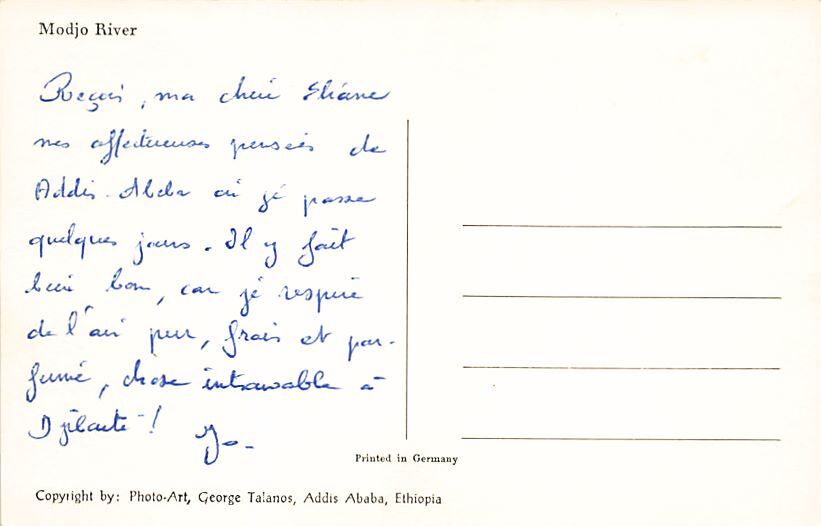 Modjo River
Reçois, ma chère Eliane
mes affectueuses pensées de
Addis-Abeba où je passe
quelques jours. Il y fait
bien bon, car je respire
de l'air pur, frais et par-
fumé, chose introuvable à
Djibouti !
Jo-
Printed in Germany
Copyright by: Photo-Art, George Talanos, Addis Ababa, Ethiopia